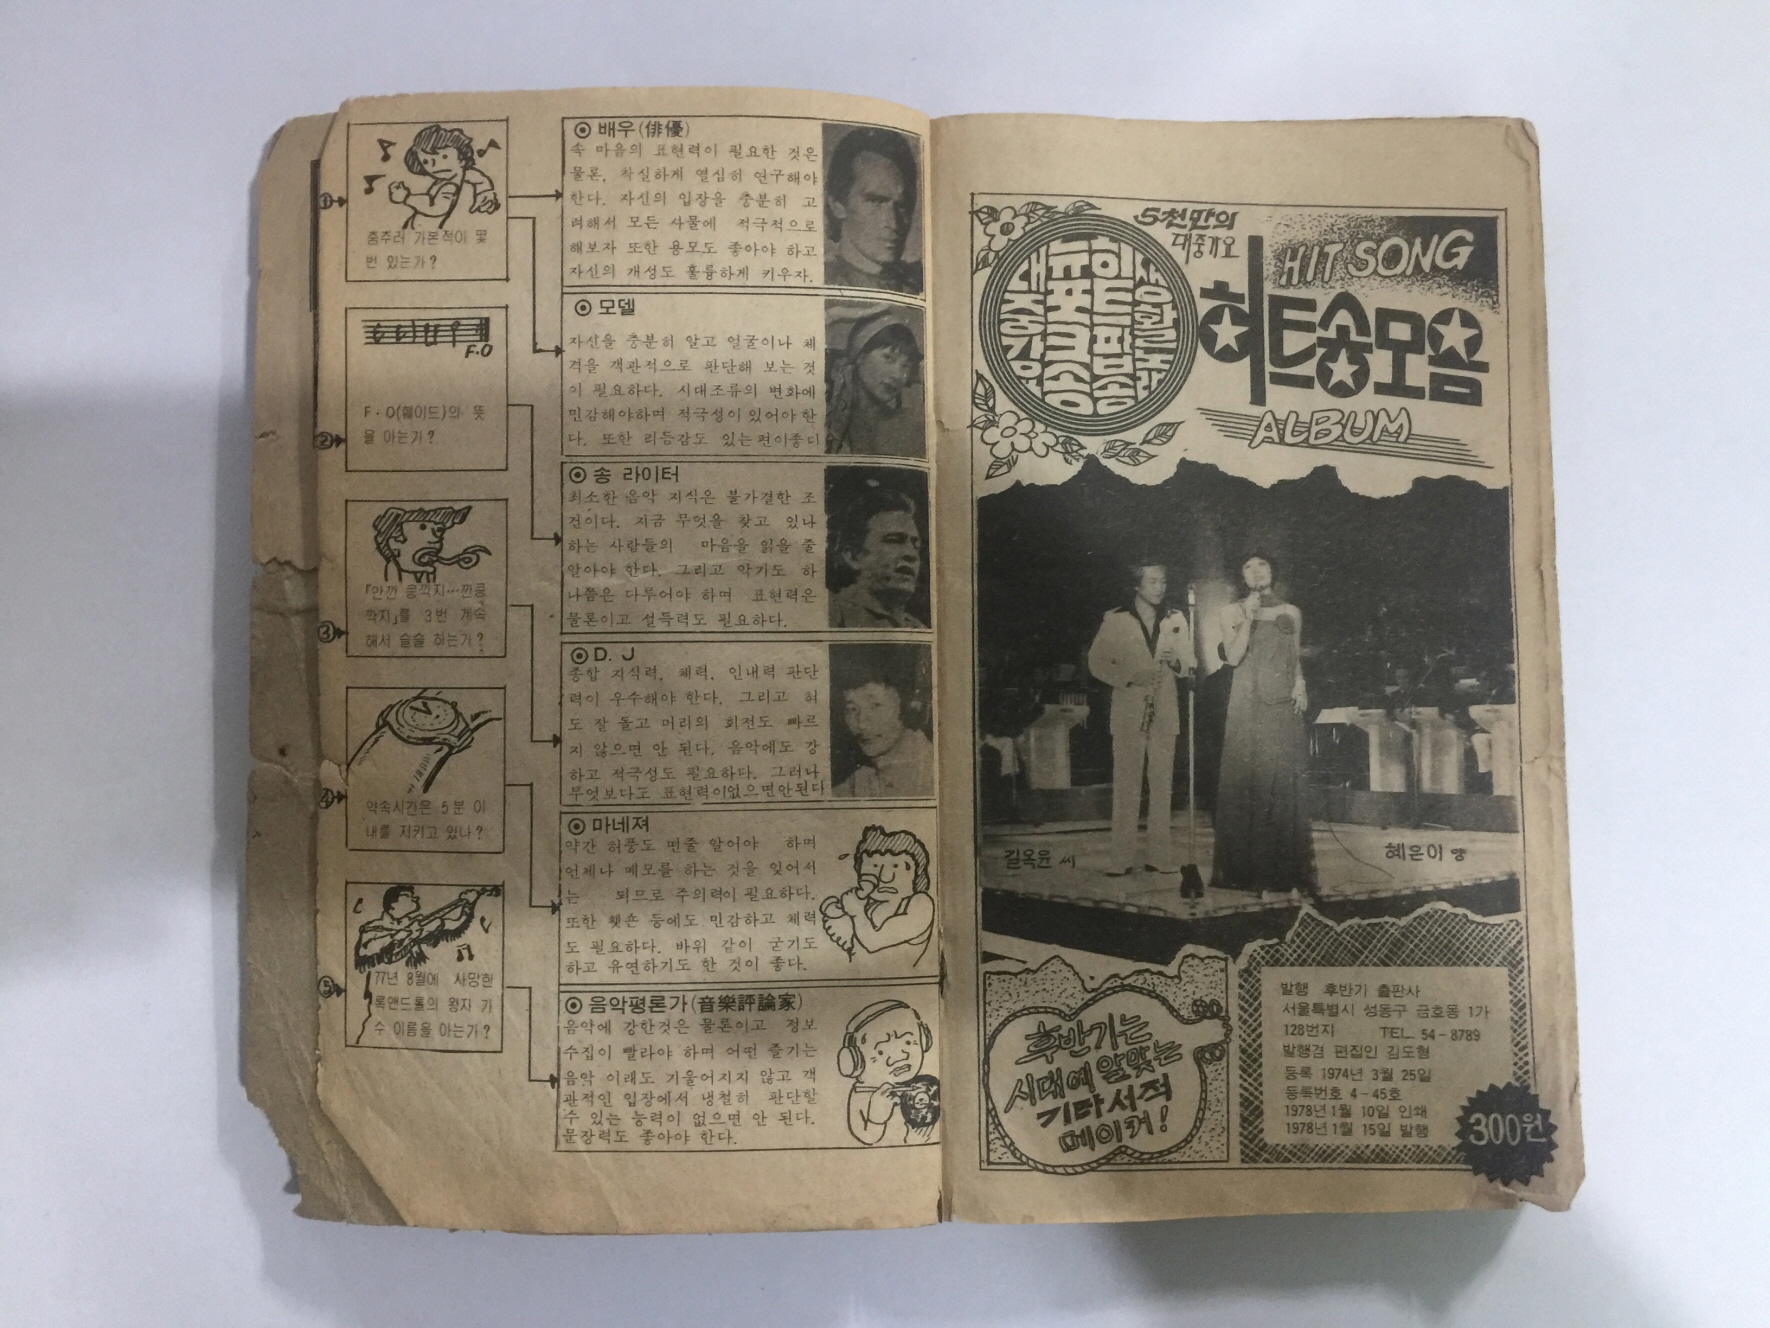 ①
춤추러 가본적이 몇
번 있는가?
②
F.O
F·O(훼이드)의 뜻
을 아는가?
③
깍지」를 3번 계속
해서 술술 하는가?
④
약속시간은 5분 이
내를 지키고 있나?
⑤
77년 8월에 사망한
록앤드롤의 왕자 가
수 이름을 아는가?
⊙ 배우(俳優)
속 마음의 표현력이 필요한 것은
물론, 착실하게 열심히 연구해야
한다. 자신의 입장을 충분히 고
려해서 모든 사물에 적극적으로
해보자 또한 용모도 좋아야 하고
자신의 개성도 훌륭하게 키우자.
⊙ 모델
자신을 충분히 알고 얼굴이나 체
격을 객관적으로 판단해 보는 것
이 필요하다. 시대조류의 변화에
민감해야하며 적극성이 있어야 한
다. 또한 리듬감도 있는편이좋디
⊙ 송 라이터
최소한 음악 지식은 불가결한 조
건이다. 지금 무엇을 찾고 있나
하는 사람들의 마음을 읽을 줄
알아야 한다. 그리고 악기도 하
나쯤은 다루어야 하며 표현력은
물론이고 설득력도 필요하다.
⊙ D. J
종합 지식력, 체력, 인내력 판단
력이 우수해야 한다. 그리고 혀
도 잘 돌고 머리의 회전도 빠르
지 않으면 안 된다. 음악에도 강
하고 적극성도 필요하다. 그러나
무엇보다도 표현력이없으면안된다
⊙ 마네져
약간 허풍도 떤줄 알어야 하며
언제나 메모를 하는 것을 잊어서
는 되므로 주의력이 필요하다.
또한 등에도 민감하고 체력
도 필요하다. 바위 같이 굳기도
하고 유연하기도 한 것이 좋다.
⊙ 음악평론가(音樂評論家)
음악에 강한것은 물론이고 정보
수집이 빨라야 하며 어떤 줄기는
음악 이래도 기울어지지 않고 객
관적인 입장에서 냉철히 판단할
수 있는 능력이 없으면 안 된다.
문장력도 좋아야 한다.
5천만의
대중가요
HIT SONG
히트송모음
ALBUM
길옥윤 씨
혜은이 양
후반기는
시대에 알맞는
기타서적
메이커!
발행 후반기 출판사
서울특별시 성동구 금호동 1가
128번지 TEL. 54-8789
발행겸 편집인 김도형
등록 1974년 3월 25일
등록번호 4-45호
1978년 1월 10일 인쇄
1978년 1월 15일 발행
300원